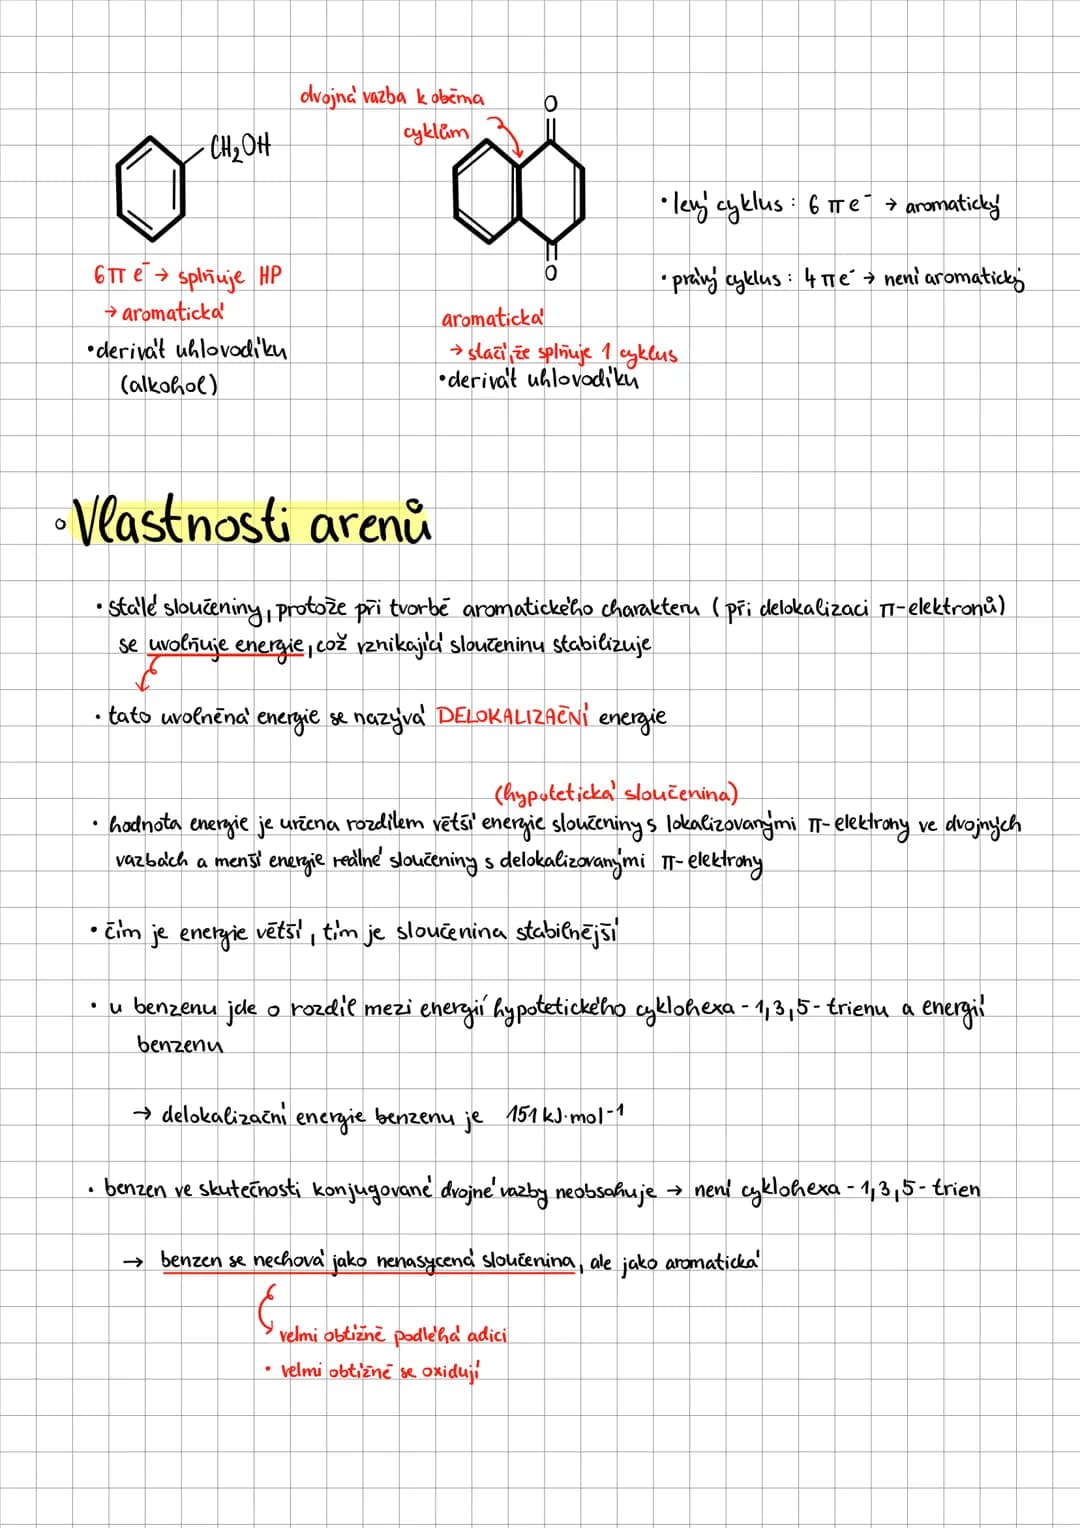 dvojná vazba k oběma
cyklům
CH₂OH
O
O
• levý cyklus : 6 π e⁻ → aromatický
• pravý cyklus : 4 π e⁻ → není aromatický
6π e⁻ → splňuje HP
→ aromatická
• derivát uhlovodíku
(alkohol)
aromatická
→ stačí, že splňuje 1 cyklus
• derivát uhlovodíku
◦ Vlastnosti arenů
• stálé sloučeniny, protože při tvorbě aromatického charakteru (při delokalizaci π-elektronů)
se uvolňuje energie, což vznikající sloučeninu stabilizuje
• tato uvolněná energie se nazývá DELOKALIZAČNÍ energie
(hypotetická sloučenina)
• hodnota energie je určena rozdílem větší energie sloučeniny s lokalizovanými π-elektrony ve dvojných
vazbách a menší energie reálné sloučeniny s delokalizovanými π-elektrony
• čím je energie větší, tím je sloučenina stabilnější
• u benzenu jde o rozdíl mezi energií hypotetického cyklohexa-1,3,5-trienu a energií
benzenu
→ delokalizační energie benzenu je 151 kJ·mol-1
• benzen ve skutečnosti konjugované dvojné vazby neobsahuje → není cyklohexa-1,3,5-trien
→ benzen se nechová jako nenasycená sloučenina, ale jako aromatická
velmi obtížně podléhá adici
• velmi obtížně se oxidují